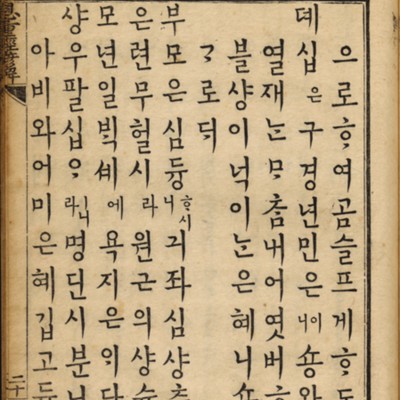 으로ᄒᆞ여곰슬프게ᄒᆞ도
뎨십은구경년민은이니숑와
열재ᄂᆞᆫᄆᆞᄎᆞᆷ내어엿버ᄒᆞ
블샹이넉이ᄂᆞᆫ은혜니숑
ᄀᆞ로ᄃᆡ
부모은심듕ᄒᆞ시니긔좌심샹츄
은련무헐시라원근의샹슈
모년일ᄇᆡᆨ셰에욕지은이단
샹우팔십ᄋᆞ이니라명단시분니
아비와어미은혜깁고듕
恩重經諺解
二十